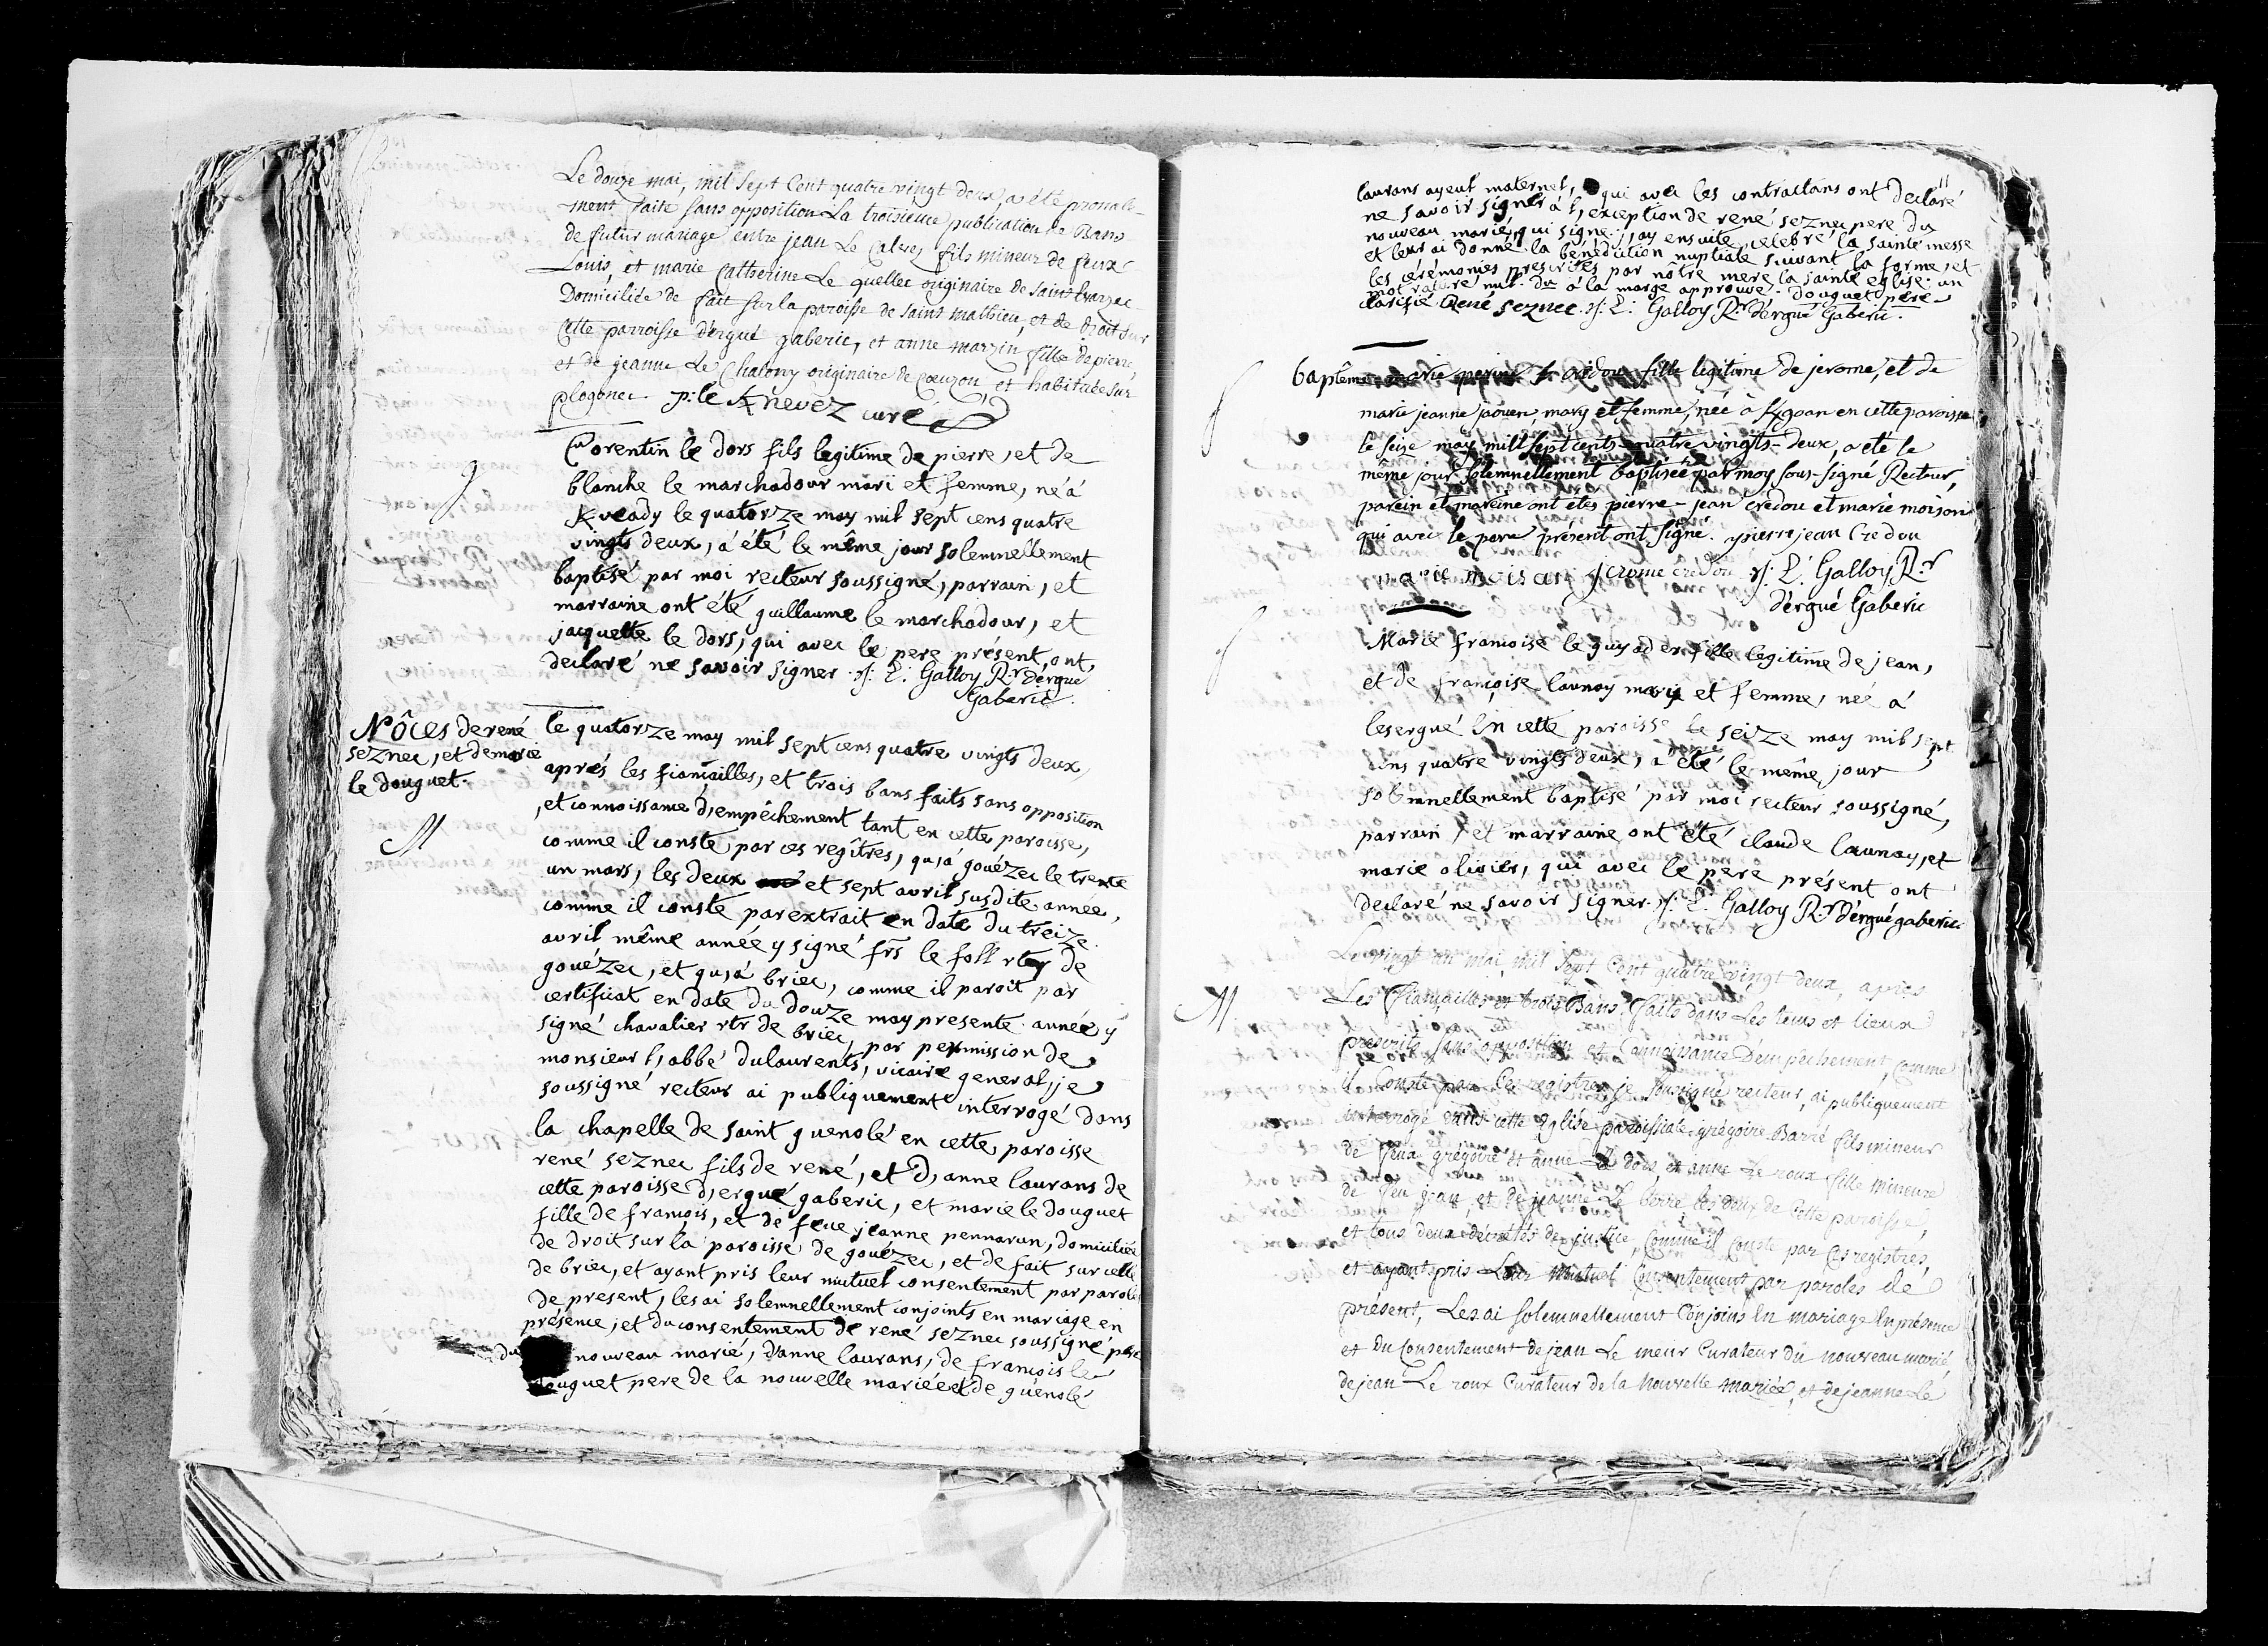 Le douze mai, mil sept Cent quatre vingt deux, a été pronale-
ment faite sans opposition La troisieme publication de Bans
de futur mariage entre jean Le Calvez fils mineur de feux
Louis, et marie Catherine Le quellec originaire de
Domiciliée de fait sur la paroisse de saint mathieu, et de droit sur
Cette parroisse d'ergué gaberic, et anne marzin fille de pierre,
et de jeanne Le Chalony originaire de et habituée sur
plogonec p: le Knevez curé
Corentin le dors fils legitime de pierre, et de
blanche le marchadour mari et femme, né à
Kveady le quatorze may mil sept cens quatre
vingts deux, a été le même jour solemnellement
baptisé par moi recteur soussigné, parrain, et
marraine ont été guillaume le marchadour, et
jacquette le dors, qui avec le pere présent, ont,
declaré ne savoir signer. L: Galloy Rr d'ergué
Gaberic.
Nôces de rené
seznec, et de marie
le douguet.
M
le quatorze may mil sept cens quatre vingts deux,
aprés les fiançailles, et trois bans faits sans opposition
, et connoissance d,empêchement tant en cette paroisse,
comme il conste par ces regîtres, qu,à gouézec le trente
un mars, les deux et sept avril susdite année,
comme il conste par extrait en date du treize
avril même année y signé frs le foll rtr de
gouézec, et qu,à briec, comme il paroit par
certificat en date du douze may presente année y
signé chavalier rtr de briec, par permission de
monsieur l,abbé dulaurents, vicaire general, je
soussigné recteur ai publiquement interrogé dans
la chapelle de saint guenolé en cette paroisse
rené seznec fils de rené, et d,anne laurans de
cette paroisse d,ergué gaberic, et marie le douguet
fille de françois, et de feue jeanne pennarun, domiciliée
de droit sur la paroisse de gouézec, et de fait sur celle
de briec, et ayant pris leur mutuel consentement par paroles
de present, les ai solemnellement conjoints en mariage en
présence, et du consentement de rené seznec soussigné pere
du nouveau marié, d'anne laurans, de françois le
douguet pere de la nouvelle mariée et de guénolé
11
laurans ayeul maternel, qui avec les contractans ont declaré
ne savoir signer à l,exception de rené seznec pere du
nouveau marié, qui signe. j,ay ensuite, celebré la sainte messe
et leur ai donné la bénédiction nuptiale suivant la forme, et
les cérémonies prescrites par notre mere la sainte eglise. un
mot raturé nul. du à la marge approuvé. Douguet pere
clarifié René Seznec. L: Galloy Rr d'ergué Gaberic.
baptême marie perine credou fille legitime de jerome, et de
marie jeanne jaouen mary et femme, née à Kgoan en cette paroisse
le seize may mill sept cents quatre vingts-deux, a été le
même jour solemnellement baptisée par moy sous-signé Recteur,
parein et mareine ont étés pierre-jean credou et marie moison
qui avec le pere présent ont signé. pierre jean Credou
marie moisan jerome credou L: Galloy Rr
d'ergué Gaberic
Marie françoise le guyader fille legitime de jean,
et de françoise launay mary et femme, neé à
lesergué en cette paroisse le seize may mil sept
cens quatre vingts deux, a été le même jour
solemnellement baptisé par moi recteur soussigné,
parrain, et marraine ont été claude launay, et
marie olivier, qui avec le pere présent ont
declaré ne savoir signer. L: Galloy Rr d'ergué gaberic.
M
Le vingt un mai, mil sept Cent quatre vingt deux, aprés
Les fiançailles et trois Bans faits dans Les tems et lieux
prescrits sans opposition et Connoissance D'empêchement, comme
il Conste par Ces registres, je soussigné recteur, ai publiquement
interrogé dans cette église paroissiale grégoire Barré fils mineur
de feux grégoire et anne Le dors, et anne Le roux fille mineure
de feu jean, et de jeanne Le berre les deux de Cette paroisse,
et tous deux décretés de justice, Comme il Conste par Ces registres,
et ayant pris Leur Mutuel Consentement par paroles de
présent, Les ai solemnellement Conjoins en mariage en présence
et du Consentement de jean Le meur Curateur du nouveau marié
de jean Le roux Curateur de la Nouvelle mariée, et de jeanne Le